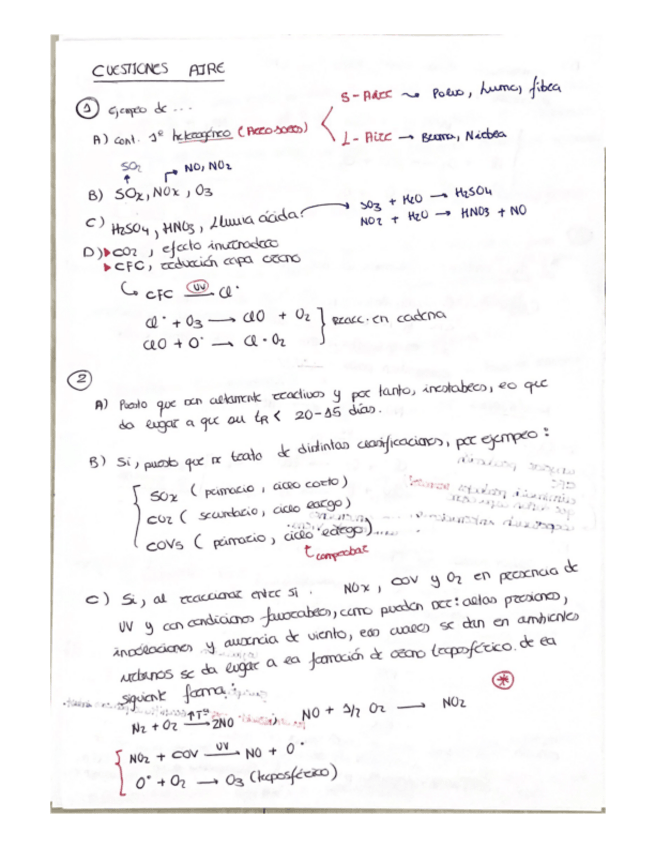 CUESTIONES AIRE
1 Ejemplo de ...
S-Aire → Polvo, humo, fibra
A) cont. 1º heterogéneo (Aerosoles)
L-Aire → Bruma, Niebla
SO2 NO, NO2
B) SOx, NOx, O3
C) H2SO4, HNO3, Lluvia ácida.
SO3 + H2O → H2SO4
NO2 + H2O → HNO3 + NO
D) CO2, efecto invernadero
CFC, reducción capa ozono
CFC UV Cl·
Cl· + O3 → ClO + O2
ClO + O· → Cl· O2
Reacc. en cadena
2
A) Puesto que son altamente reactivos y por tanto, inestables, lo que
da lugar a que su tR < 10-15 días.
B) Si, puesto que se trata de distintas clasificaciones, por ejemplo:
SOx (primario, ciclo corto)
CO2 (secundario, ciclo largo)
COVs (primario, ciclo largo)
comprobar
C) Si, al reaccionar entre si. NOx, COV y O2 en presencia de
UV y con condiciones favorables, como pueden ser: altas presiones,
insolaciones y ausencia de viento, las cuales se dan en ambientes
urbanos se da lugar a la formación de ozono troposférico. de la
siguiente forma:
N2 + O2 ↑Tª 2NO ; NO + 1/2 O2 → NO2
NO2 + COV UV NO + O·
O· + O2 → O3 (troposférico)